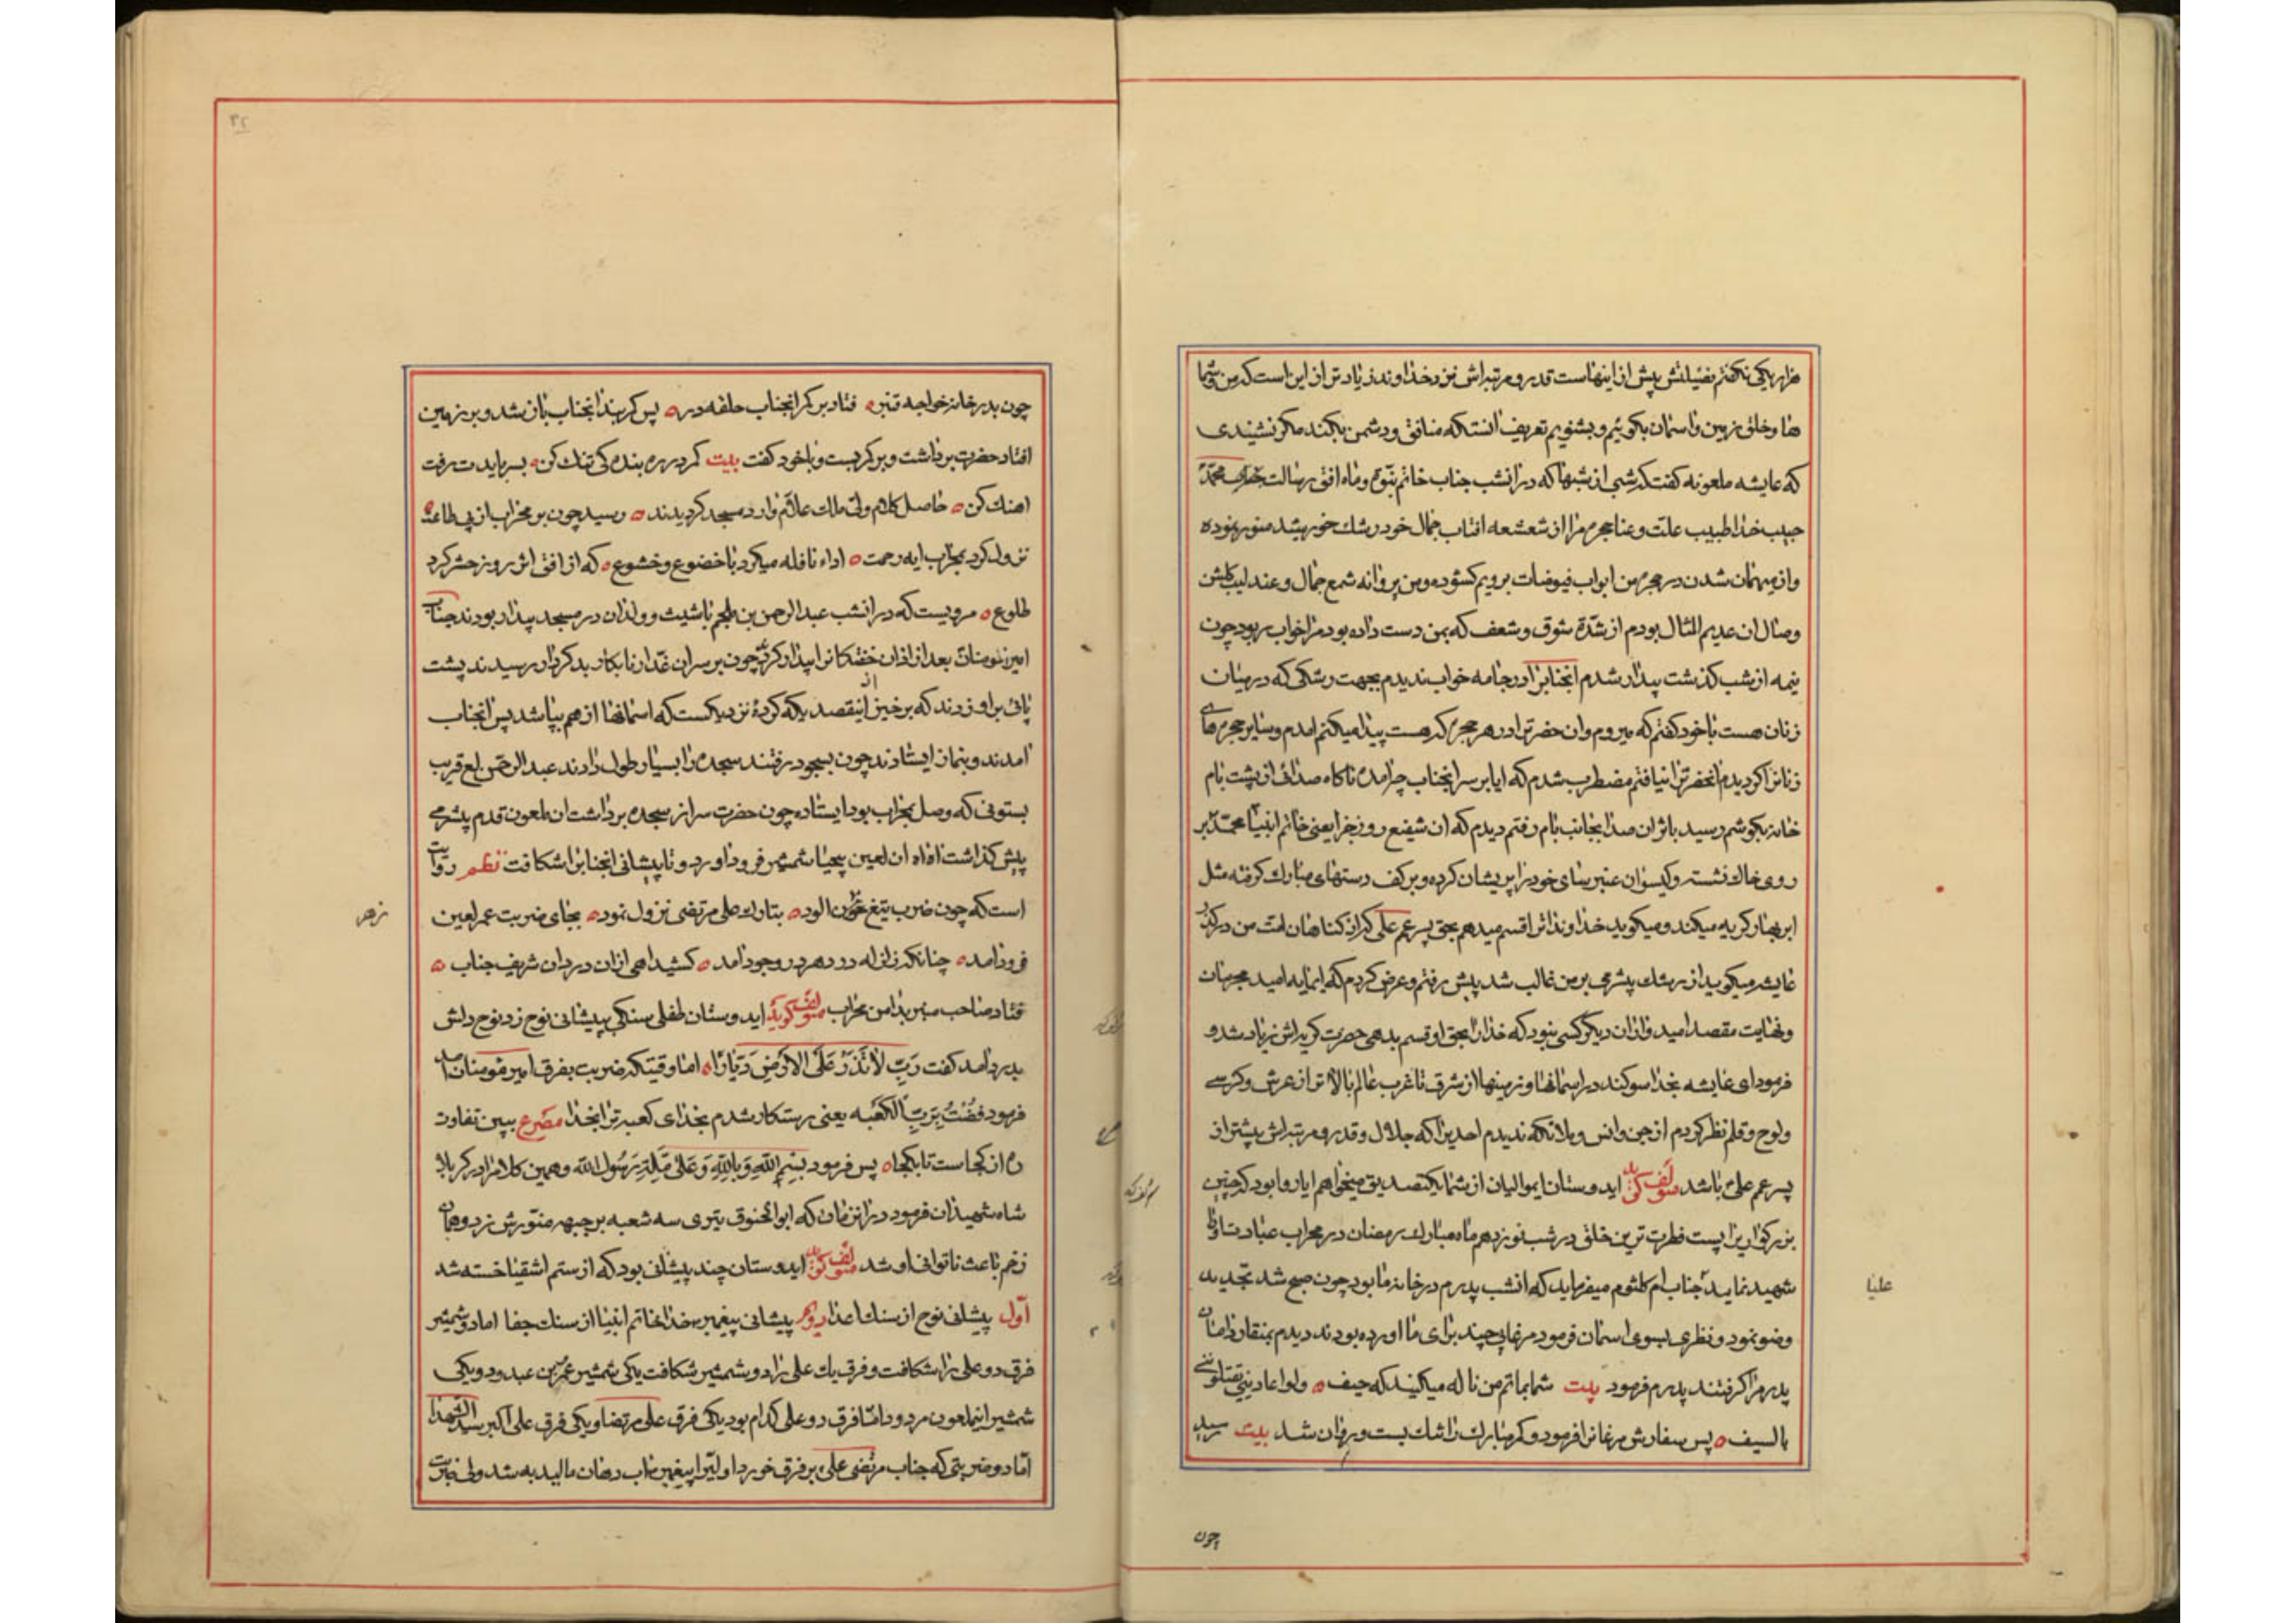 هزار یکی نکفتم فضیلتش پیش از اینهاست قدر و مرتبه‌اش نزد خداوند زیادتر از این است که من و شما
ها و خلق زمین و اسمان بکوئیم و بشنویم تعریف انستکه منافق و دشمن بکند مکر نشنیدی
که عایشه ملعونه کفت که شبی از شبها که در انشب جناب خاتم نبوة و ماه افق رسالت محمد
حبیب خدا طبیب علت و عنا حجره مرا از شعشعه افتاب جمال خود رشك خورشید منور نموده
و از مهمان شدن در حجره من ابواب فیوضات برویم کشوده و من پروانه شمع جمال و عندلیب کلشن
وصال ان عدیم المثال بودم از شدّة شوق و شعف که بمن دست داده بود مرا خواب ربود چون
نیمه از شب کذشت بیدار شدم انجنابرا در جامه خواب ندیدم بجهت رشکی که در میان
زنان هست با خود کفتم که میروم و ان حضرترا در هر حجره که هست پیدا میکنم امدم و سایر حجره های
زنانرا کردیدم انحضرترا نیافتم مضطرب شدم که ایا بر سر انجناب چه امده ناکاه صدائی از پشت بام
خانه بکوشم رسید باثر ان صدا بجانب بام رفتم دیدم که ان شفیع روز جزا یعنی خاتم انبیا محمد بر
روی خاك نشسته و کیسوان عنبر سای خود را پریشان کرده و بر کف دستهای مبارك کرفته مثل
ابر بهار کریه میکند و میکوید خداوندا ترا قسم میدهم بحق پسر عم علی که از کناهان امت من در کذر
عایشه میکوید از رشك پیشرمی بر من غالب شد پیش رفتم و عرض کردم که ایمایه امید مجرمان
و نهایت مقصد امیدواران دیکر کسی نبود که خدا را بحق او قسم بدهی حضرت کریه‌اش زیاد شد و
فرمود ای عایشه بخدا سوکند در اسمانها و زمینها از شرق تا غرب عالم بالاتر از عرش و کرسی
و لوح و قلم نظر کردم از جن و انس و ملائکه ندیدم احدیرا که جلال و قدر و مرتبه‌اش پیشتر از
پسر عم علی باشد مؤلف کوید ایدوستان ایموالیان از شما یکتصدیق میخواهم ایا روا بود که چنین
بزرکواریرا پست فطرت ترین خلق در شب نوزدهم ماه مبارك رمضان در محراب عبادت او را
شهید نماید جناب ام کلثوم میفرماید که انشب پدرم در خانه ما بود چون صبح شد تجدید
وضو نمود و نظری بسوی اسمان فرمود مرغابی چند برای ما اورده بودند دیدم بمنقار دامان
پدرم را کرفتند پدرم فرمود بیت شما بماتم من ناله میکنید که حیف ه ولوا عادینی تقتلونی
بالسیف ه پس سفارش مرغانرا فرمود و کمر مبارك را شك بست و روان شد بیت رسید
علیا
چون
چون بدر خانه خواجه قنبر ه فتاد بر کمر انجناب حلقه در ه پس کمربند انجناب باز شد و بر زمین
افتاد حضرت برداشت و بر کمر بست و با خود کفت بیت کمر در ره بنده کی تنك کن ه بسر بایدت رفت
اهنك کن ه حاصل کلام ولی ملك علام وارد مسجد کردیدند ه رسید چون بر محراب از پی طاعت ه
نزول کرد بمحراب ایه رحمت ه اداء نافله میکرد با خضوع و خشوع ه که از افق اثر روز حشر کرد
طلوع ه مرویست که در انشب عبد الرحمن بن ملجم با شیث و وردان در مسجد بیدار بودند جناب
امیر مؤمنان بعد از اذان خفتکانرا بیدار کرد چون بر سر ان غدار نابکار بد کردار رسیدند پشت
پائی بر او زدند که بر خیز از اینقصد یکه کردهٔ نزدیکست که اسمانها از هم بپاشد پس انجناب
امدند و بنماز ایستادند چون بسجود رفتند سجده را بسیار طول دادند عبد الرحمن لع قریب
بستونی که وصل بمحراب بود ایستاده چون حضرت سر از سجده برداشت ان ملعون قدم پیشرمی
پیش کذاشت اه اه ان لعین بیحیا شمشیر فرود اورد و تا پیشانی انجناب را شکافت نظم روایت
است که چون ضرب تیغ خون الود ه بتارك علی مرتضی نزول نمود ه بجای ضربت عمر لعین
فرود امد ه چنانکه زلزله در دهر در وجود امد ه کشید اهی از ان درد ان شریف جناب ه
فتاد صاحب منبر بدامن محراب مؤلف کوید ایدوستان طفلی سنکی بپیشانی نوح زد نوح دلش
بدرد امد کفت رَبِّ لاٰ تَذَرْ عَلَی الاَرْضِ دَیّاراً ه اما وقتیکه ضربت بفرق امیر مؤمنان امد
فرمود فُزْتُ بِرَبِّ الکَعْبَه یعنی رستکار شدم بخدای کعبه ترا بخدا مصرع ببین تفاوت
ره از کجاست تا بکجا ه پس فرمود بِسْمِ اللهِ وَ بِاللهِ وَ عَلیٰ مِلَّةِ رَسُولِ الله و همین کلام را در کربلا
شاه شهیدان فرمود در انزمان که ابو الحنوق تیری سه شعبه بر جبهه منورش زد و همان
زخم باعث ناتوانی او شد مؤلف کوید ایدوستان چند پیشانی بود که از ستم اشقیا خسته شد
اول پیشانی نوح از سنك اعدا دویم پیشانی پیغمبر خدا خاتم انبیا از سنك جفا اما دو شمشیر
فرق دو علی را شکافت و فرق یك علی را دو شمشیر شکافت یکی شمشیر عمر بن عبدود و یکی
شمشیر ابنملعون مردود اما فرق دو علی کدام بود یکی فرق علی مرتضا و یکی فرق علی اکبر سید الشهدا
اما دو ضربتی که جناب مرتضی علی بر فرق خورد اولیرا پیغمبر اب دهان مالید به شد ولی ضربت
زهر